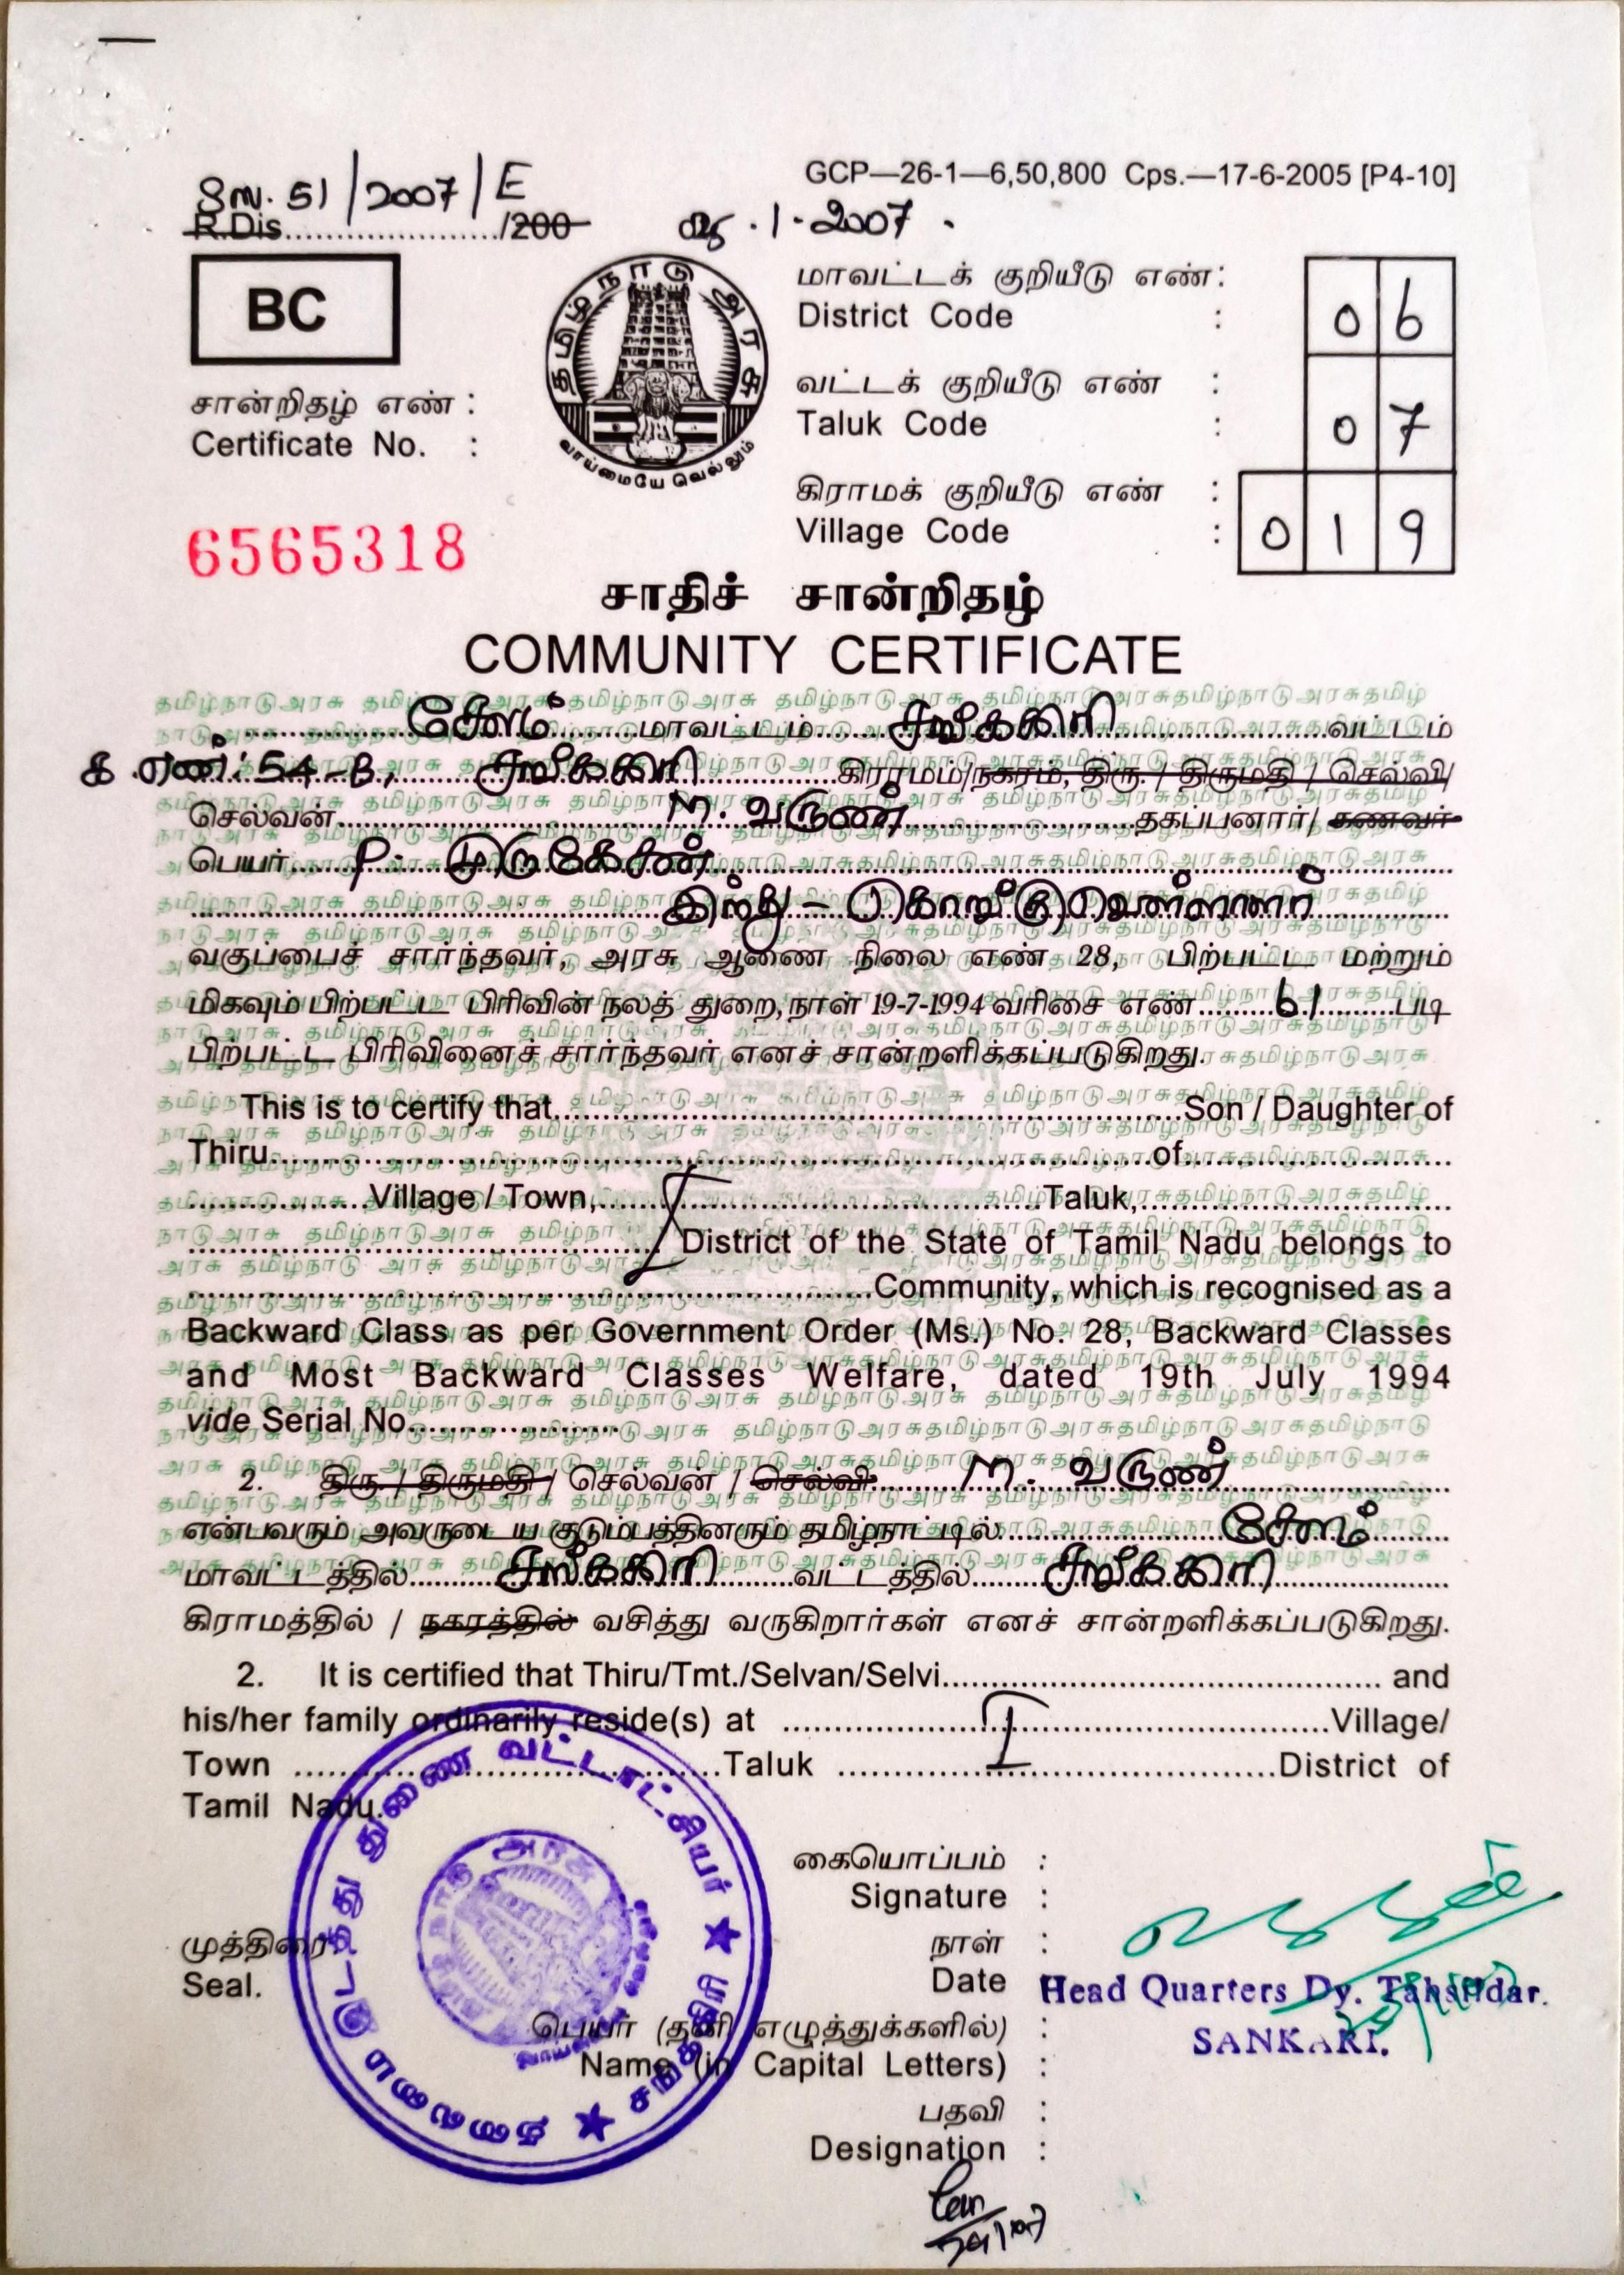 மூ.ப. 51/2007/E
R.Dis....................../200
GCP—26-1—6,50,800 Cps.—17-6-2005 [P4-10]
.1.2007.
BC
தமிழ்நாடு அரசு
வாய்மையே வெல்லும்
சான்றிதழ் எண் :
Certificate No. :
6565318
மாவட்டக் குறியீடு எண் :
District Code : 06
வட்டக் குறியீடு எண் :
Taluk Code : 07
கிராமக் குறியீடு எண் :
Village Code : 019
சாதிச் சான்றிதழ்
COMMUNITY CERTIFICATE
சேலம் மாவட்டம் சங்ககிரி வட்டம்
க.எண்: 54-B, சங்ககிரி கிராமம்/நகரம், திரு. / திருமதி / செல்வி/
செல்வன் M. வருண் தகப்பனார்/ கணவர்
பெயர் P. முருகேசன்
இந்து - கொங்கு வெள்ளாளர்
வகுப்பைச் சார்ந்தவர், அரசு ஆணை நிலை எண் 28, பிற்பட்ட மற்றும்
மிகவும் பிற்பட்ட பிரிவின் நலத் துறை, நாள் 19-7-1994 வரிசை எண் 61 படி
பிற்பட்ட பிரிவினைச் சார்ந்தவர் எனச் சான்றளிக்கப்படுகிறது.
This is to certify that..........Son / Daughter of
Thiru..........of..........
..........Village / Town,..........Taluk,..........
..........District of the State of Tamil Nadu belongs to
..........Community, which is recognised as a
Backward Class as per Government Order (Ms.) No. 28, Backward Classes
and Most Backward Classes Welfare, dated 19th July 1994
vide Serial No..........
2. திரு. / திருமதி / செல்வன் / செல்வி M. வருண்
என்பவரும் அவருடைய குடும்பத்தினரும் தமிழ்நாட்டில் சேலம்
மாவட்டத்தில் சங்ககிரி வட்டத்தில் சங்ககிரி
கிராமத்தில் / நகரத்தில் வசித்து வருகிறார்கள் எனச் சான்றளிக்கப்படுகிறது.
2. It is certified that Thiru/Tmt./Selvan/Selvi.......... and
his/her family ordinarily reside(s) at ..........Village/
Town ..........Taluk ..........District of
Tamil Nadu.
கையொப்பம் :
Signature :
முத்திரை
Seal.
நாள் :
Date :
Head Quarters Dy. Tahsildar.
SANKARI.
பெயர் (தனி எழுத்துக்களில்) :
Name (in Capital Letters) :
பதவி :
Designation :
தலைமையிடத்து துணை வட்டாட்சியர் ★ சங்ககிரி ★